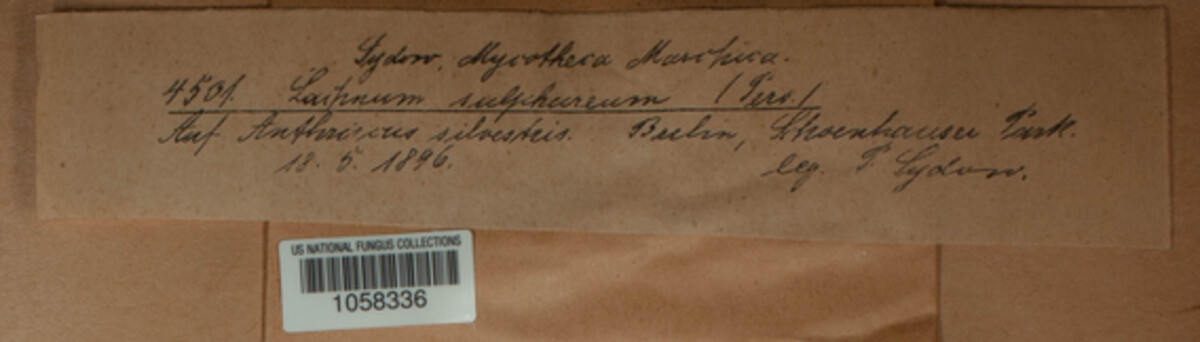 Sydow, Mycotheca Marchica.
4501. Lachnum sulphureum (Pers.)
Auf Anthriscus silvestris. Berlin, Schoenhauser Park.
18. 5. 1896. leg. P. Sydow.
US NATIONAL FUNGUS COLLECTIONS
1058336